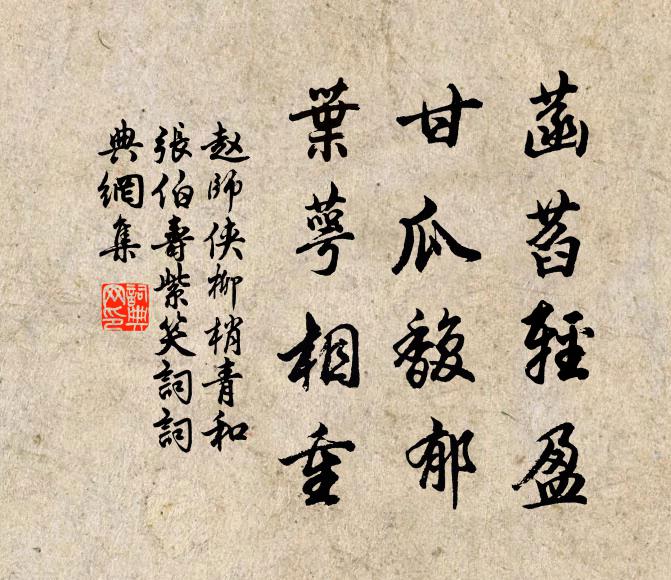 菡萏輕盈
甘瓜馥郁
葉萼相重
赵師俠柳梢青和
張伯壽紫笑詞詞
典網集
詞典
网印